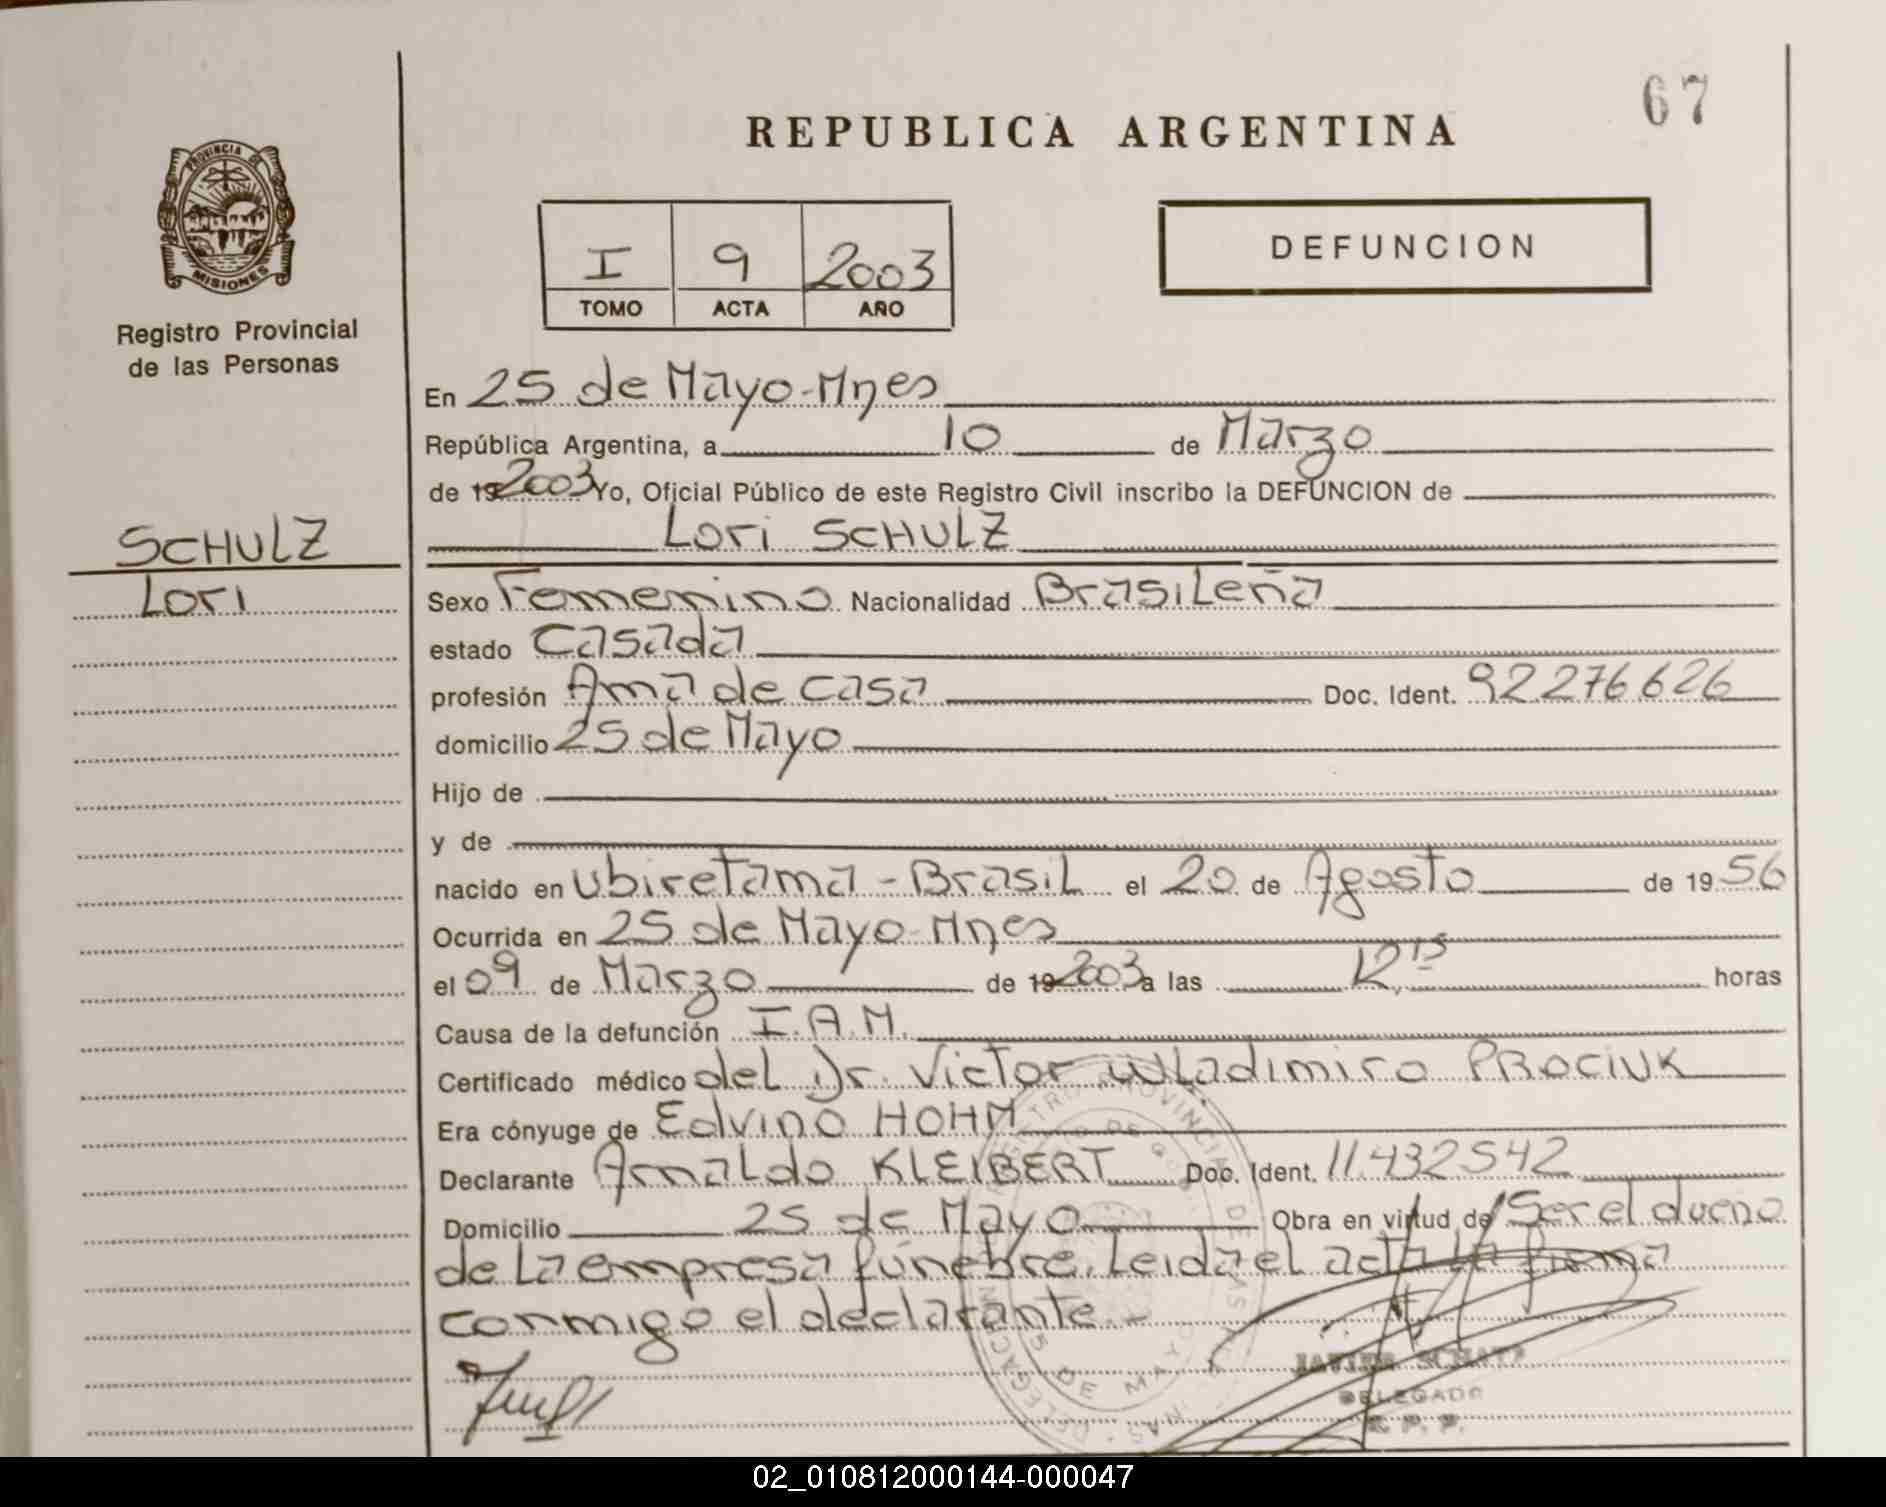 67
REPUBLICA ARGENTINA
PROVINCIA DE
MISIONES
Registro Provincial
de las Personas
I 9 2003
TOMO ACTA AÑO
DEFUNCION
SCHULZ
Lori
En 25 de Mayo-Mnes
República Argentina, a 10 de Marzo
de 19 2003 Yo, Oficial Público de este Registro Civil inscribo la DEFUNCION de
Lori SCHULZ
Sexo Femenino Nacionalidad Brasileña
estado Casada
profesión Ama de casa Doc. Ident. 92276626
domicilio 25 de Mayo
Hijo de
y de
nacido en Ubiretama - Brasil el 20 de Agosto de 1956
Ocurrida en 25 de Mayo-Mnes
el 09 de Marzo de 19 2003 a las 12,15 horas
Causa de la defunción I.A.M.
Certificado médico del Dr. Victor Wladimiro PROCIUK
Era cónyuge de Edvino HOHM
Declarante Arnaldo KLEIBERT Doc. Ident. 11.432542
Domicilio 25 de Mayo Obra en virtud de Ser el dueño
de la empresa fúnebre. Leida el acta la firma
conmigo el declarante.-
DELEGADO
R. P. P.
02_010812000144-000047